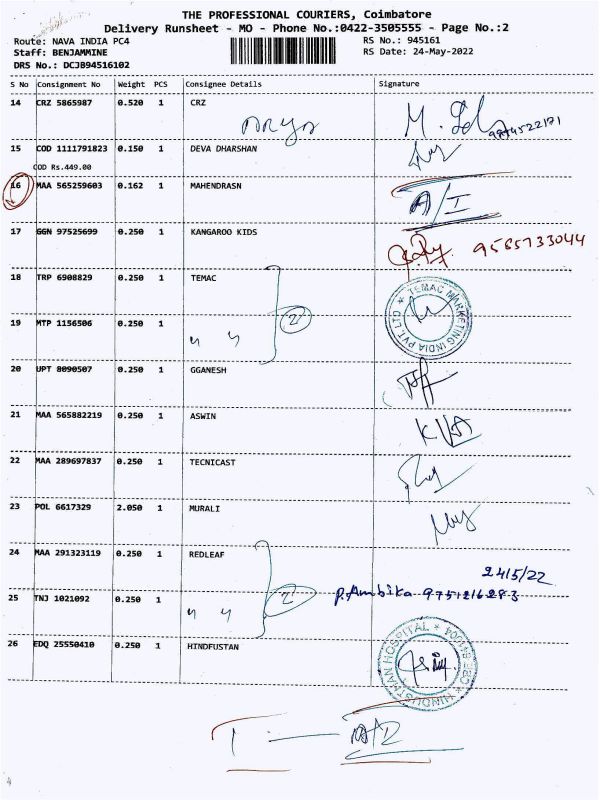 THE PROFESSIONAL COURIERS, Coimbatore
Delivery Runsheet - MO - Phone No.:0422-3505555 - Page No.:2
Route: NAVA INDIA PC4 RS No.: 945161
Staff: BENJAMMINE RS Date: 24-May-2022
DRS No.: DCJB94516102
S No Consignment No Weight PCS Consignee Details Signature
14 CRZ 5865987 0.520 1 CRZ
15 COD 1111791823 0.150 1 DEVA DHARSHAN
COD Rs.449.00
16 MAA 565259603 0.162 1 MAHENDRASN A/I
17 GGN 97525699 0.250 1 KANGAROO KIDS 9585733044
18 TRP 6908829 0.250 1 TEMAC
TEMAC MARKETING INDIA PVT. LTD
2
19 MTP 1156506 0.250 1 " "
20 UPT 8090507 0.250 1 GGANESH
21 MAA 565882219 0.250 1 ASWIN
22 MAA 289697837 0.250 1 TECNICAST
23 POL 6617329 2.050 1 MURALI
24 MAA 291323119 0.250 1 REDLEAF
24/5/22
25 TNJ 1021092 0.250 1 " " 2 P. Ambika
26 EDQ 25550410 0.250 1 HINDFUSTAN
HINDUSTMAN HOSPITAL